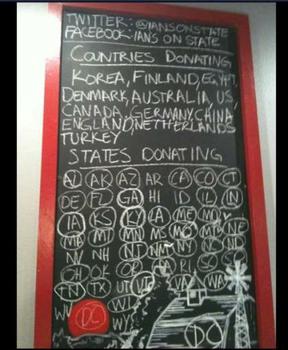 TWITTER: @IANSONSTATE
FACEBOOK: IANS ON STATE
COUNTRIES DONATING
KOREA, FINLAND, EGYPT,
DENMARK, AUSTRALIA, US,
CANADA, GERMANY, CHINA
ENGLAND, NETHERLANDS
TURKEY
STATES DONATING
AL AK AZ AR CA CO CT
DE FL GA HI ID IL IN
IA KS KY LA ME MD
MA MI MN MS MO MT NE
NV NH NT NM NY NC ND
OH OK OR PA RI SC
TN TX UT VT VA WA
WV WI
WY DC
DC